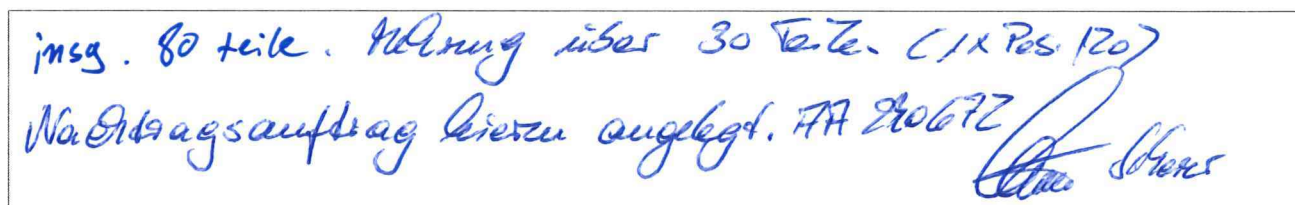 insg. 80 teile. Mehrung über 30 Teile. (1x Pos. 120)
Nachtragsauftrag hierzu angelegt. AA 240672